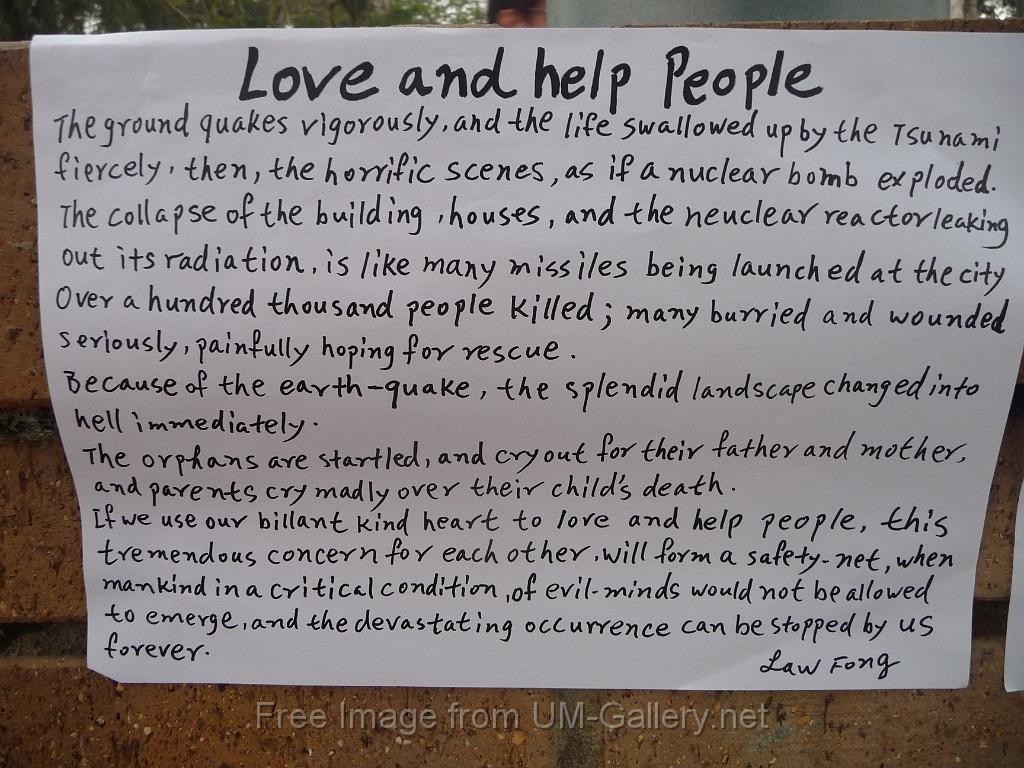 Love and help People
The ground quakes vigorously, and the life swallowed up by the Tsunami
fiercely, then, the horrific scenes, as if a nuclear bomb exploded.
The collapse of the building, houses, and the neuclear reactor leaking
out its radiation, is like many missiles being launched at the city
Over a hundred thousand people killed; many burried and wounded
seriously, painfully hoping for rescue.
Because of the earth-quake, the splendid landscape changed into
hell immediately.
The orphans are startled, and cry out for their father and mother,
and parents cry madly over their child's death.
If we use our billant kind heart to love and help people, this
tremendous concern for each other, will form a safety-net, when
mankind in a critical condition, of evil-minds would not be allowed
to emerge, and the devastating occurrence can be stopped by us
forever.
Law Fong
Free Image from UM-Gallery.net